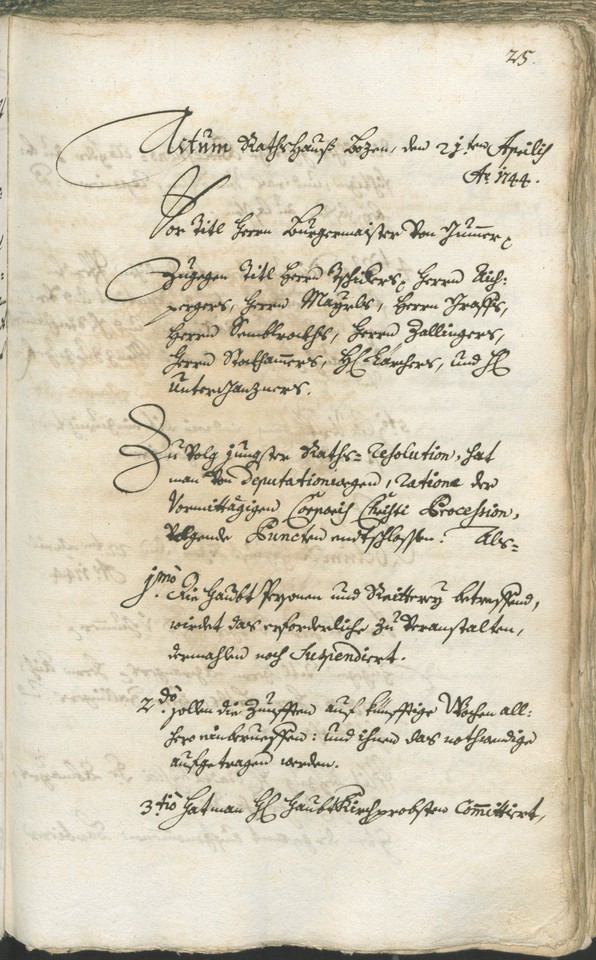 25.
Actum Rathshauß Bozen, den 21ten Aprilis
Ao. 1744.
Vor Titl Herrn Burgermaister von Zimmer,
Zugegen Titl Herrn Tschiderer, Herrn Aich-
pergers, Herrn Mayrls, Herrn Graffs,
Herrn Semblroths, Herrn Zallingers,
Herrn Stockhamers, H: Karchers, und H:
Unterganzners.
Zu Volg jüngster Raths-resolution, hat
man von Deputationwegen, ratione der
Vormittägigen Corporis Christi Procession,
Volgende Puncten endtschlossen: Als-
1mo Die Haubt Personen und Reitterey betreffend,
wirdet das erforderliche zu veranstalten,
dermahlen noch suspendiert.
2do sollen die Zunfften auf künfftige Wochen all:
hero einberueffen: und ihnen das nothwendige
aufgetragen werden.
3tio hat man H: Haubt Kirchprobsten Committiert,